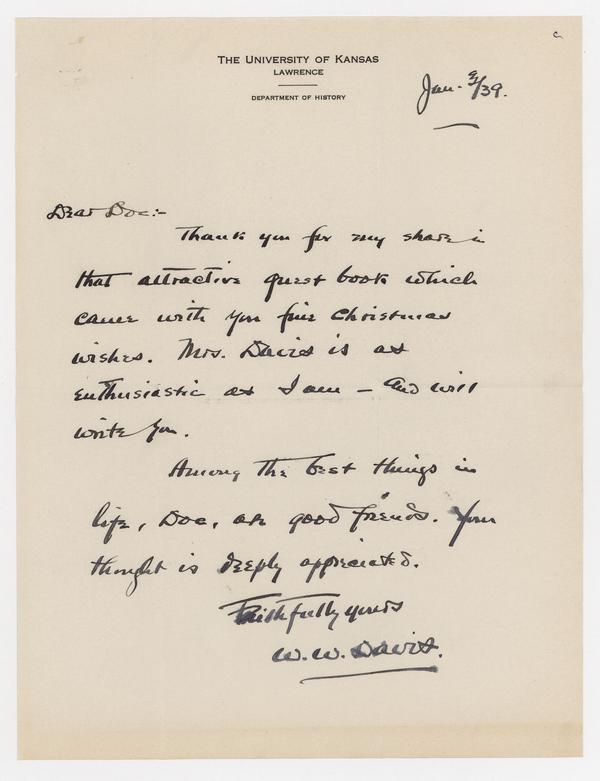 THE UNIVERSITY OF KANSAS
LAWRENCE
DEPARTMENT OF HISTORY
Jan. 3/39.
Dear Doc:-
Thank you for my share in
that attractive guest book which
came with you fine Christmas
wishes. Mrs. Davis is as
enthusiastic as I am - and will
write you.
Among the best things in
life, Doc, are good friends. Your
thought is deeply appreciated.
Faithfully yours
W. W. Davis.